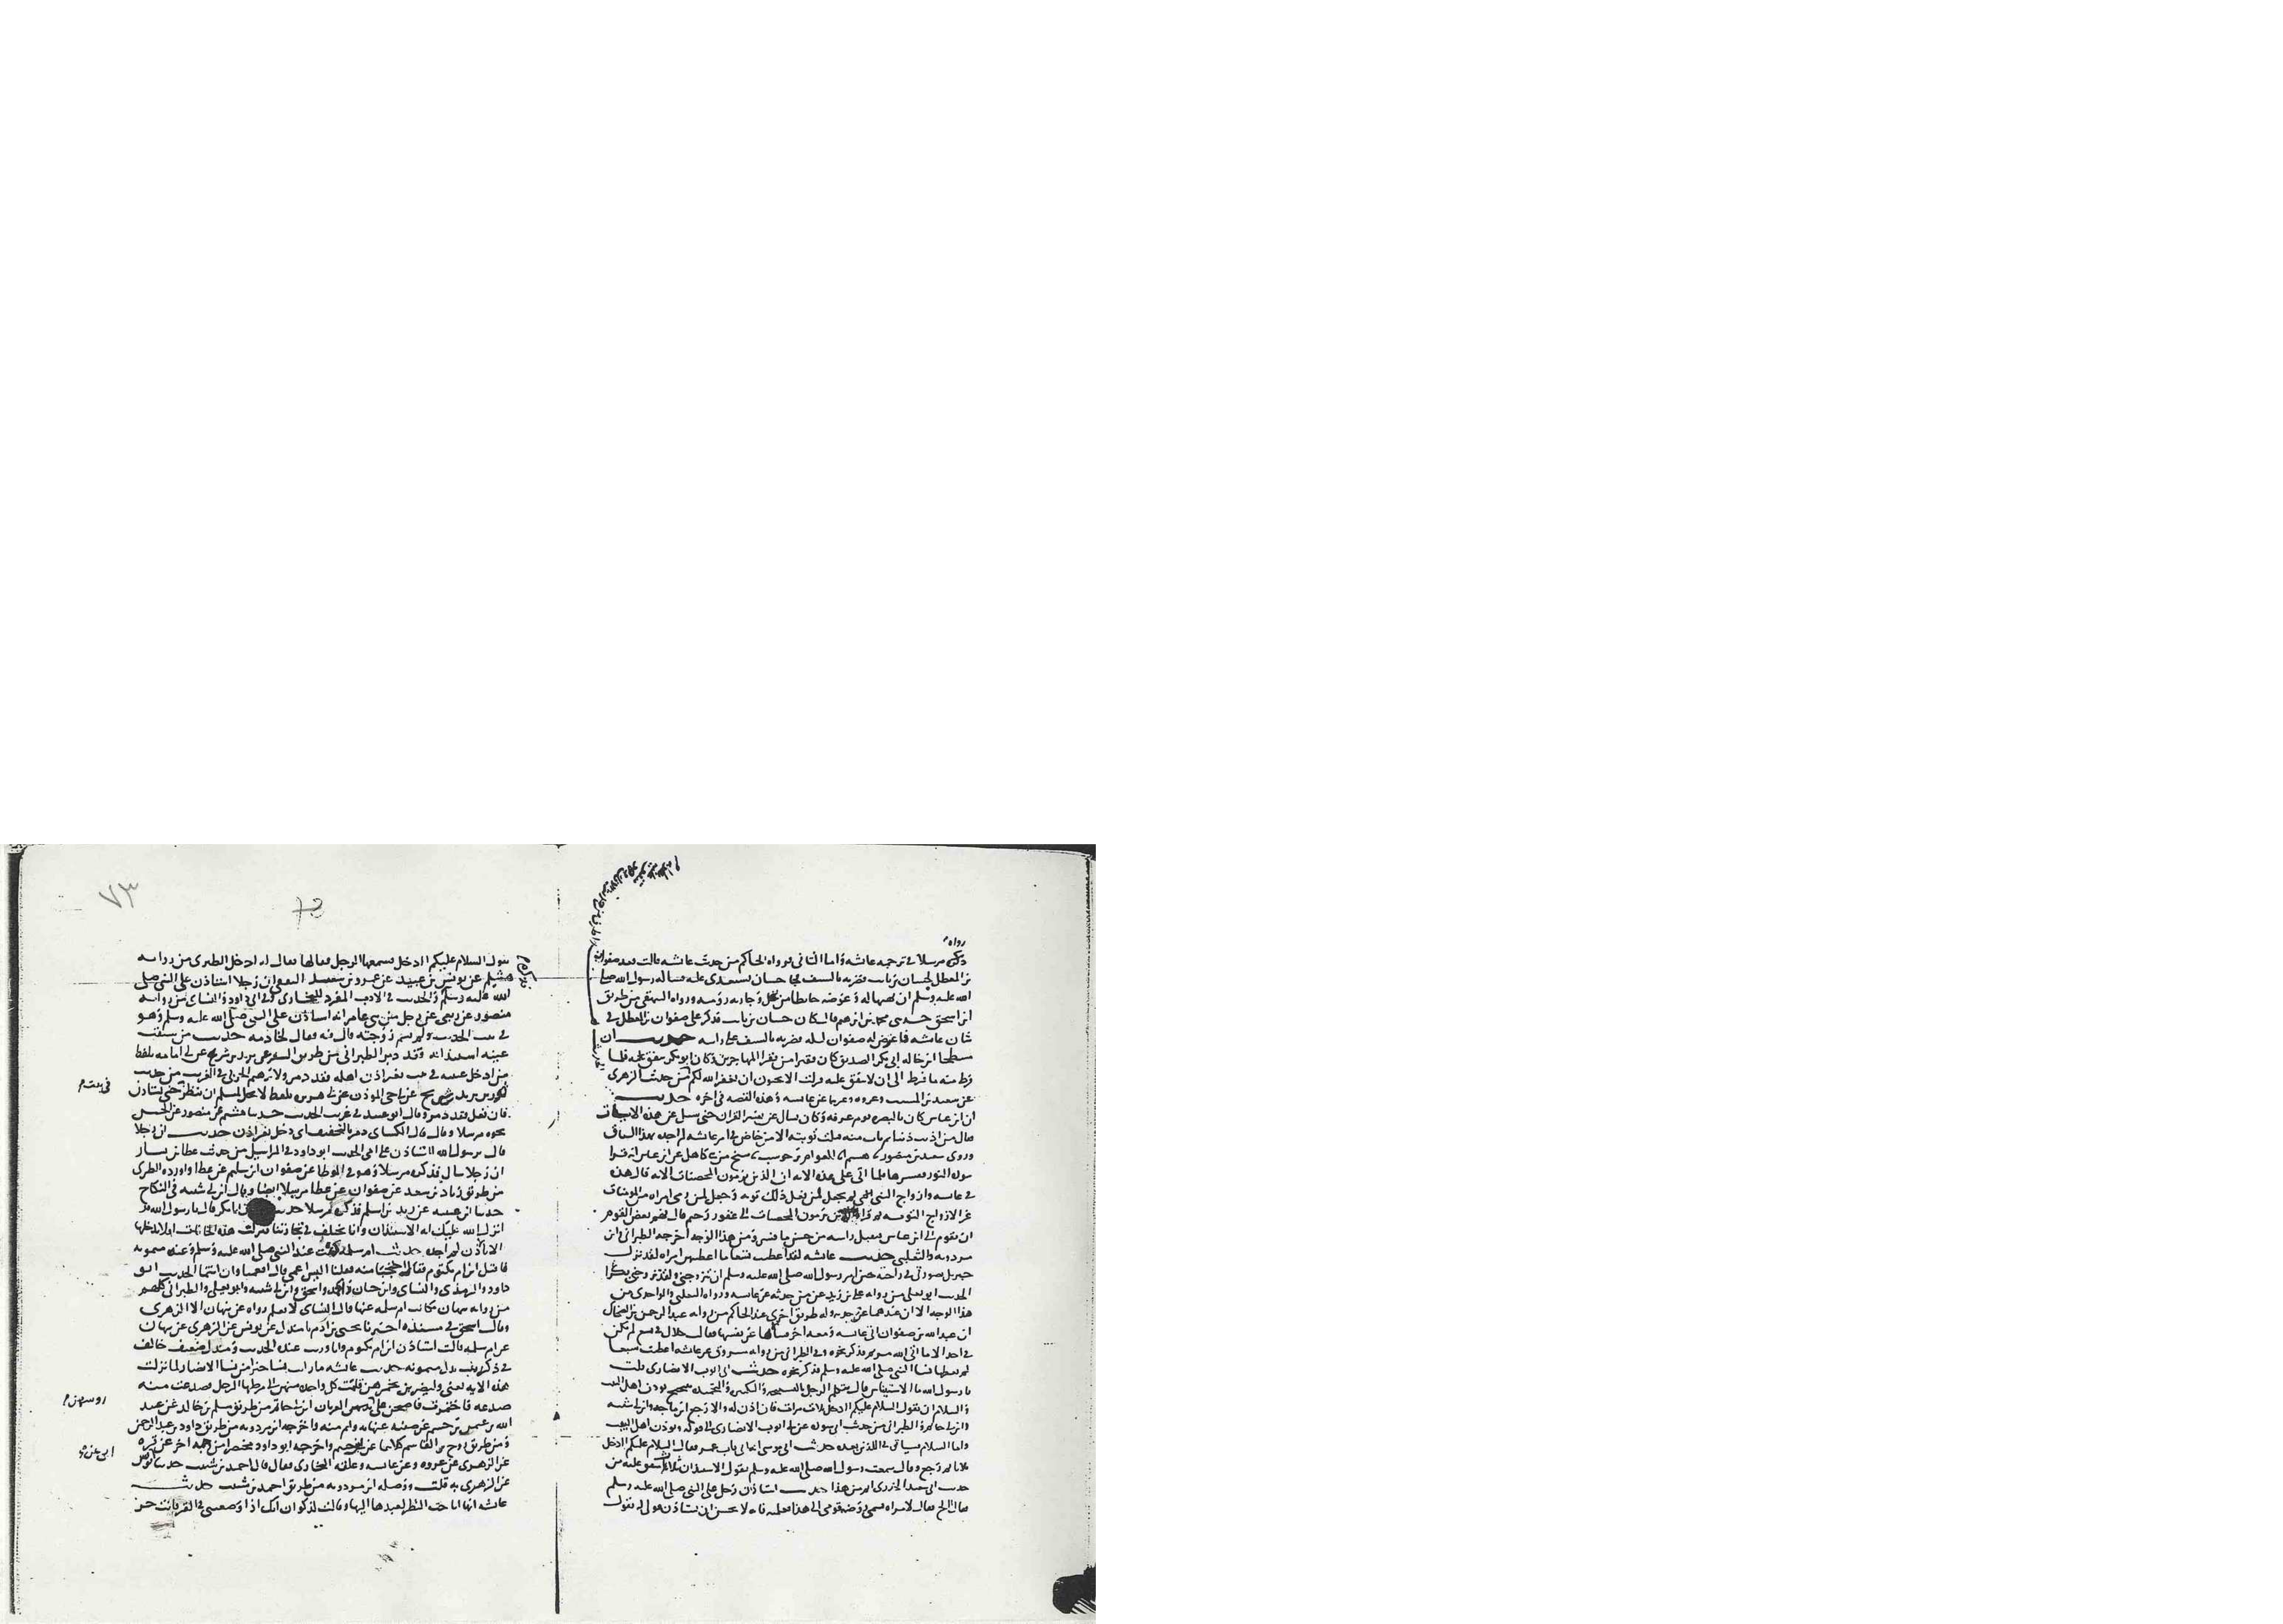 رواه
ذكره مرسلا في ترجمه عائشه واما الثاني فرواه الحاكم من حديث عائشه قالت وقعد صفوان
بن المعطل لحسان بن ثابت فضربه بالسيف فجا حسان يستعدي عليه فساله رسول الله صلى
الله عليه وسلم ان يهبها له وعوضه حايطا من نخل وجاريه روميه ورواه البيهقي من طريق
ابن اسحق حدثني محمد بن ابرهيم قال كان حسان بن ثابت قد كثر على صفوان بن المعطل في
شان عائشه فاعترض له صفوان ليله فضربه بالسيف على راسه حديث ان
مسطحا ابن خاله ابي بكر الصديق كان فقيرا من فقرا المهاجرين وكان ابو بكر ينفق عليه فلما
فرط منه ما فرط الى ان لا ينفق عليه فنزلت الا تحبون ان يغفر الله لكم من حديث الزهري
عن سعيد بن المسيب وعروه وغيرهما عن عائشه وهذه القصه في اخره حديث
ان ابن عباس كان بالبصره يوم عرفه وكان يسال عن تفسير القران حتى سيل عن هذه الايات
فقال من اذنب ذنبا ثم تاب منه قبلت توبته الا من خاض في امر عائشه لم اجده بهذا السياق
وروى سعيد بن منصور هشيم العوام بن حوشب شيخ من بني كاهل عن ابن عباس انه قرا
سوره النور ففسرها فلما اتى على هذه الايه ان الذين يرمون المحصنات الايه قال هذه
في عائشه وازواج النبي لم يجعل لمن يفعل ذلك توبه وجعل لمن رمى امراه من المومنات
غير الازواج التوبه ثم قرا والذين يرمون المحصنات الى غفور رحيم قال فهم بعض القوم
ان يقوم الى ابن عباس فيقبل راسه من حسن ما فسر ومن هذا الوجه اخرجه الطبراني وابن
مردويه والثعلبي حديث عائشه لقد اعطيت تسعا ما اعطيهن امراه لقد نزل
جبريل بصورتي في راحته حين امر رسول الله صلى الله عليه وسلم ان يتزوجني ولقد تزوجني بكرا
الحديث ابو يعلى من روايه علي بن زيد عن من حدثه عن عائشه ورواه الثعلبي والواحدي من
هذا الوجه الا ان عندهما عن جدته وله طريق اخرى عند الحاكم من روايه عبد الرحمن بن الضحاك
ان عبد الله بن صفوان اتى عائشه ومعه اخر فسالها عن نفسها فقالت خلال في تسع لم تكن
في احد الا ما اتى الله مريم فذكر نحوه وفي الطبراني من روايه مسروق عن عائشه اعطيت سبعا
لم يعطها نسا النبي صلى الله عليه وسلم فذكر نحوه حديث ابي ايوب الانصاري قلت
يا رسول الله ما الاستيناس قال يتكلم الرجل بالتسبيحه والتكبيره والتحميده يتنحنح يوذن اهل البيت
والسلام ان يقول السلام عليكم اادخل ثلاث مرات فان اذن له والا رجع ابن ماجه وابن ابي شيبه
وابن ابي حاتم والطبراني من حديث ابي سوره عن ابي ايوب الانصاري الى قوله ويوذن اهل البيت
واما السلام فسياتي في الذي بعده حديث ابي موسى انه اتى باب عمر فقال السلام عليكم اادخل
ثلاثا ثم رجع وقال سمعت رسول الله صلى الله عليه وسلم يقول الاستيذان ثلاثا متفق عليه من
حديث ابي سعيد الخدري اتم من هذا حديث استاذن رجل على النبي صلى الله عليه وسلم
فقال االج فقال لامراه يقال لها روضه قومي الى هذا فعلميه فانه لا يحسن ان يستاذن قولي له يقول
٧٣
يقول السلام عليكم اادخل فسمعها الرجل فقالها فقال له ادخل الطبري من روايه
هشيم عن يونس بن عبيد عن عمرو بن سعيد الثقفي ان رجلا استاذن على النبي صلى
الله عليه وسلم والحديث في الادب المفرد للبخاري وفي ابي داود والنساي من روايه
منصور عن ربعي عن رجل من بني عامر انه استاذن على النبي صلى الله عليه وسلم وهو
في بيت الحديث ولم يسم روضه قال فيه فقال لخادمه حديث من سبقت
عينه استيذانه فقد دمر الطبراني من طريق السفر عن يزيد بن شريح عن ابي امامه بلفظ
من ادخل عينه في بيت بغير اذن اهله فقد دمر ولابرهيم الحربي في الغريب من حديث
ثور بن يزيد عن شريح عن ابي حي الموذن عن ابي هريره بلفظ لا يحل لمسلم ان ينظر حتى يستاذن
فان فعل فقد دمر وقال ابو عبيد في غريب الحديث حدثنا هشيم عن منصور عن الحسن
نحوه مرسلا وقال قال الكساي دمر بالتخفيف اي دخل بغير اذن حديث ان رجلا
قال يرسول الله ااستاذن على امي الحديث ابو داود في المراسيل من حديث عطا بن يسار
ان رجلا سال فذكره مرسلا وهو في الموطا عن صفوان بن سليم عن عطا واورده الطبري
من طريق زياد بن سعد عن صفوان عن عطا مرسلا ايضا وقال ابن ابي شيبه في النكاح
حدثنا ابن عيينه عن زيد بن اسلم فذكره مرسلا حديث ان ابا بكر قال يا رسول الله قد
انزل الله عليك ايه الاستيذان وانا نختلف في تجارتنا فننزل هذه الخانات افلا ندخلها
الا باذن لم اجده حديث ام سلمه كنت عند النبي صلى الله عليه وسلم وعنده ميمونه
فاقبل ابن ام مكتوم فقال احتجبا منه فقلنا اليس اعمى قال افعمياوان انتما الحديث ابو
داود والترمذي والنساي وابن حبان واحمد واسحق وابن ابي شيبه وابو يعلى والطبراني كلهم
من روايه نبهان مكاتب ام سلمه عنها قال النساي لا نعلم رواه عن نبهان الا الزهري
وقال اسحق في مسنده اخبرنا يحيى بن ادم ثنا مندل عن يونس عن الزهري عن نبهان
عن ام سلمه قالت استاذن ابن ام مكتوم وانا وزينب عنده الحديث ومندل ضعيف خالف
في ذكر زينب بدل ميمونه حديث عائشه ما رايت نسا خيرا من نسا الانصار لما نزلت
هذه الايه يعني وليضربن بخمرهن قامت كل واحده منهن الى مرطها المرحل فصدعت منه
صدعه فاختمرت فاصبحن على روسهن الغربان ابن ابي حاتم من طريق مسلم بن خالد عن عبد
الله بن عثمن بن خثيم عن صفيه عنها به واتم منه واخرجه ابن مردويه من طريق داود بن عبد الرحمن
ومن طريق روح بن القاسم كلاهما عن ابن خثيم واخرجه ابو داود مختصرا من وجه اخر عن قره
عن الزهري عن عروه وعن عائشه وعلقه البخاري فقال قال احمد بن شبيب حدثنا ابي عن يونس
عن الزهري به قلت ووصله ابن مردويه من طريق احمد بن شبيب حديث
عائشه انها اباحت النظر لعبدها اليها وقالت لذكوان انك اذا وضعتني في القبر فانت حر